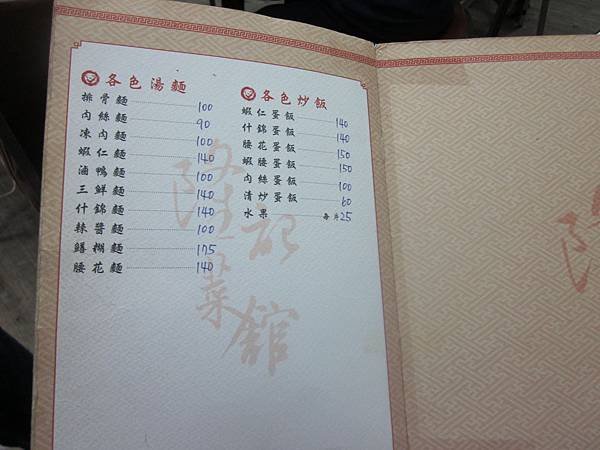 各色湯麵
排骨麵 100
肉絲麵 90
凍肉麵 100
蝦仁麵 140
滷鴨麵 100
三鮮麵 140
什錦麵 140
辣醬麵 100
鱔糊麵 175
腰花麵 140
各色炒飯
蝦仁蛋飯 140
什錦蛋飯 140
腰花蛋飯 150
蝦腰蛋飯 150
肉絲蛋飯 100
清炒蛋飯 60
水果 每片25
隆記菜館
隆